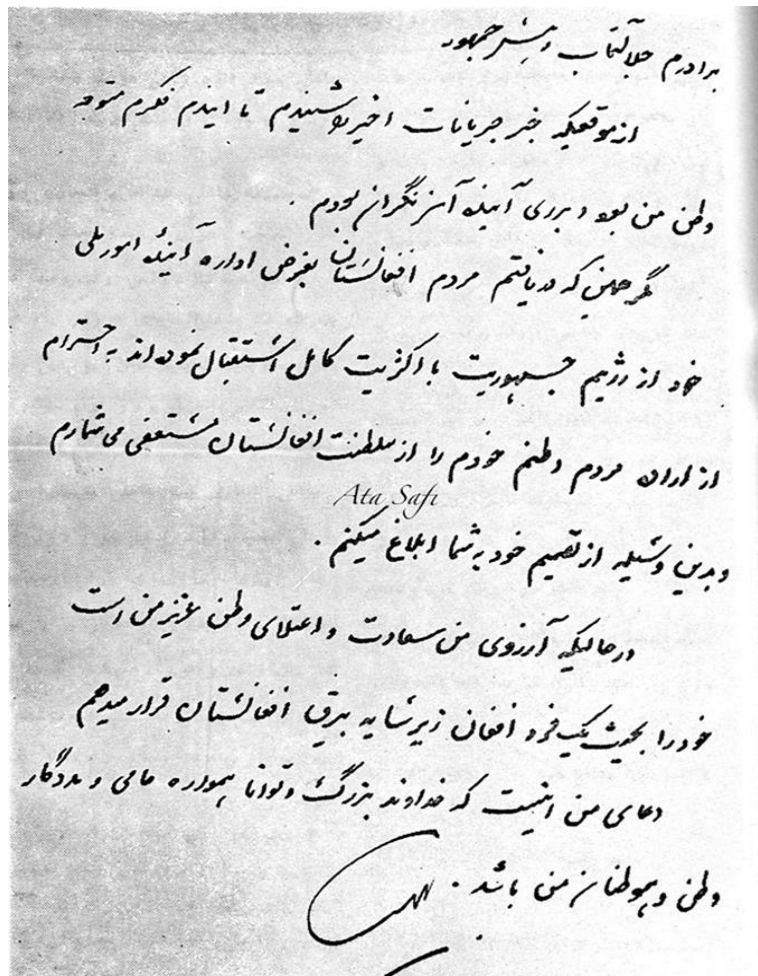 برادرم جلالتماب رئیس جمهور
از موقعیکه خبر جریانات اخیر را شنیدم تا ایندم فکرم متوجه
وطن من بود و برای آینده آن نگران بودم .
مگر همین که دریافتم مردم افغانستان بغرض اداره آینده امور ملی
خود از رژیم جمهوریت با اکثریت کامل استقبال نموده اند به احترام
از اراده مردم وطنم خودم را از سلطنت افغانستان مستعفی می شمارم
Ata Safi
و بدین وسیله از تصمیم خود به شما ابلاغ میکنم .
در حالیکه آرزوی من سعادت و اعتلای وطن عزیز من است
خود را بحیث یک فرد افغان زیر سایه بیرق افغانستان قرار میدهم
دعای من اینست که خداوند بزرگ و توانا همواره حامی و مددگار
وطن و هموطنان من باشد .